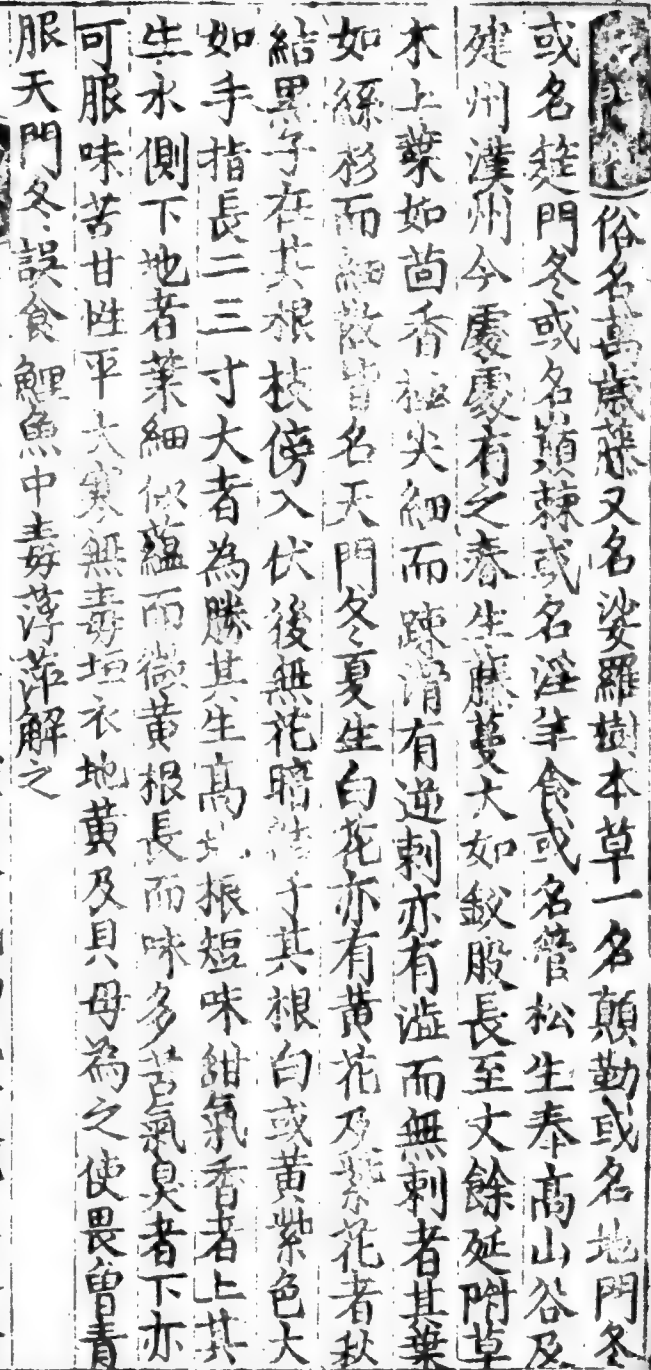 俗名萬歲藤又名娑羅樹本草一名顛勒或名地門冬
或名筵門冬或名顛棘或名淫羊食或名管松生奉高山谷及
建州漢州今處處有之春生藤蔓大如釵股長至丈餘延附草
木上葉如茴香極尖細而踈滑有逆刺亦有澁而無刺者其葉
如絲杉而細散皆名天門冬夏生白花亦有黃花及紫花者秋
結黑子在其根枝傍入伏後無花暗結子其根白或黃紫色大
如手指長二三寸大者為勝其生高地根短味甜氣香者上其
生水側下地者葉細似蘊而微黃根長而味多苦氣臭者下亦
可服味苦甘性平大寒無毒垣衣地黃及貝母為之使畏曾青
服天門冬誤食鯉魚中毒浮萍解之